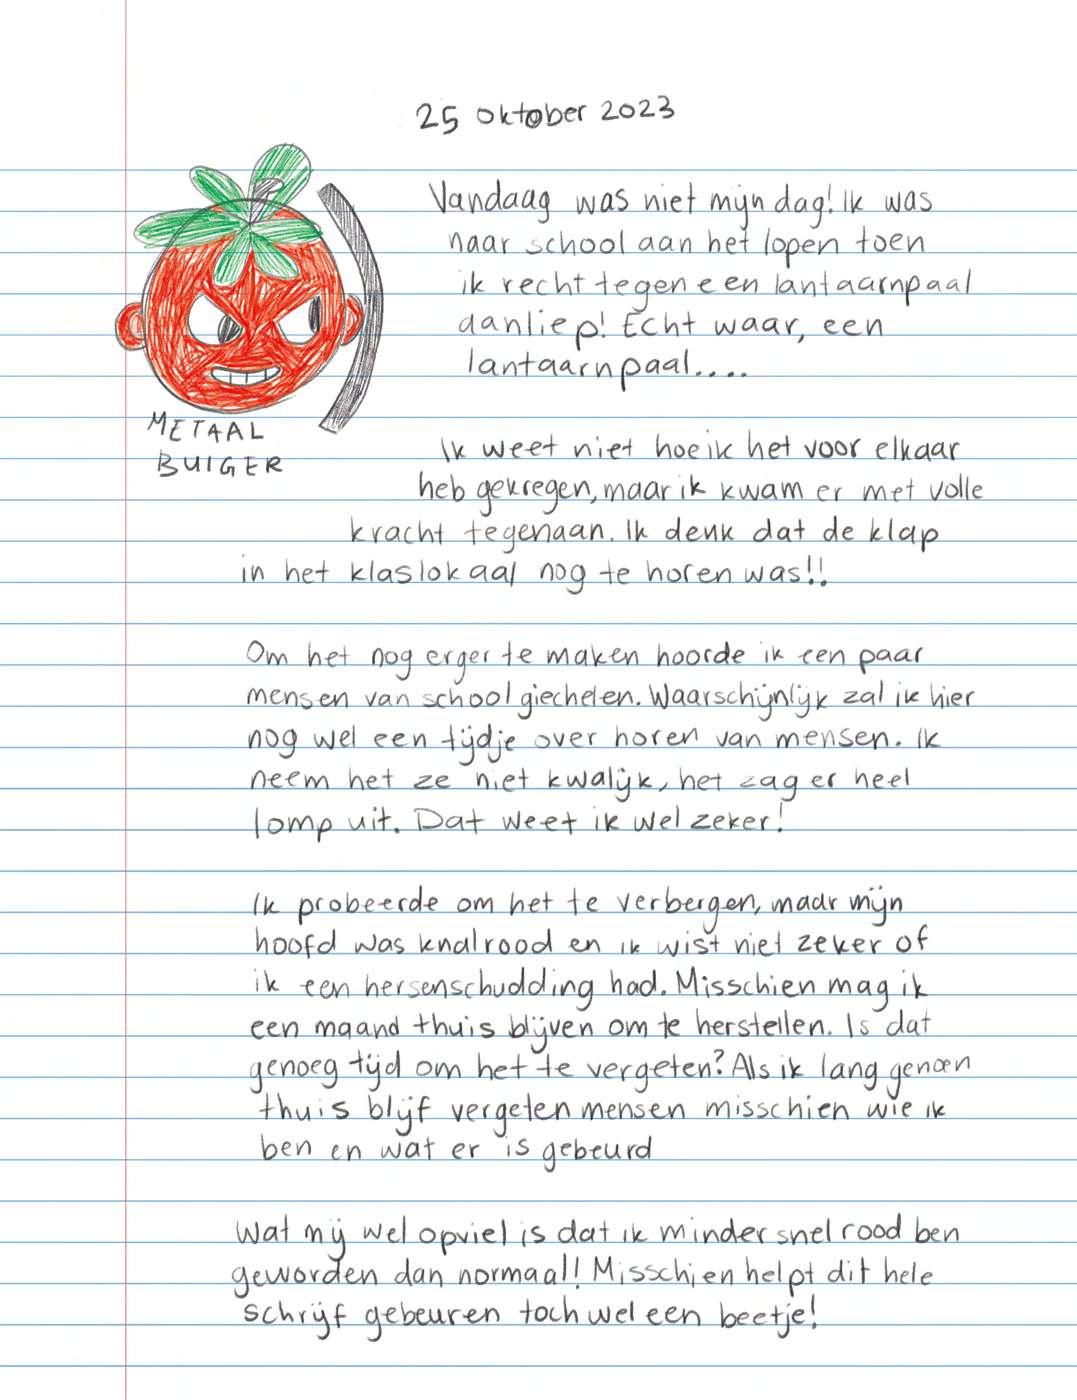 25 oktober 2023
Vandaag was niet mijn dag! Ik was
naar school aan het lopen toen
ik recht tegen een lantaarnpaal
aanliep! Echt waar, een
lantaarnpaal....
METAAL
BUIGER
Ik weet niet hoe ik het voor elkaar
heb gekregen, maar ik kwam er met volle
kracht tegenaan. Ik denk dat de klap
in het klaslokaal nog te horen was!!
Om het nog erger te maken hoorde ik een paar
mensen van school giechelen. Waarschijnlijk zal ik hier
nog wel een tijdje over horen van mensen. Ik
neem het ze niet kwalijk, het zag er heel
lomp uit. Dat weet ik wel zeker!
Ik probeerde om het te verbergen, maar mijn
hoofd was knalrood en ik wist niet zeker of
ik een hersenschudding had. Misschien mag ik
een maand thuis blijven om te herstellen. Is dat
genoeg tijd om het te vergeten? Als ik lang genoen
thuis blijf vergeten mensen misschien wie ik
ben en wat er is gebeurd
Wat mij wel opviel is dat ik minder snel rood ben
geworden dan normaal! Misschien helpt dit hele
schrijf gebeuren toch wel een beetje!